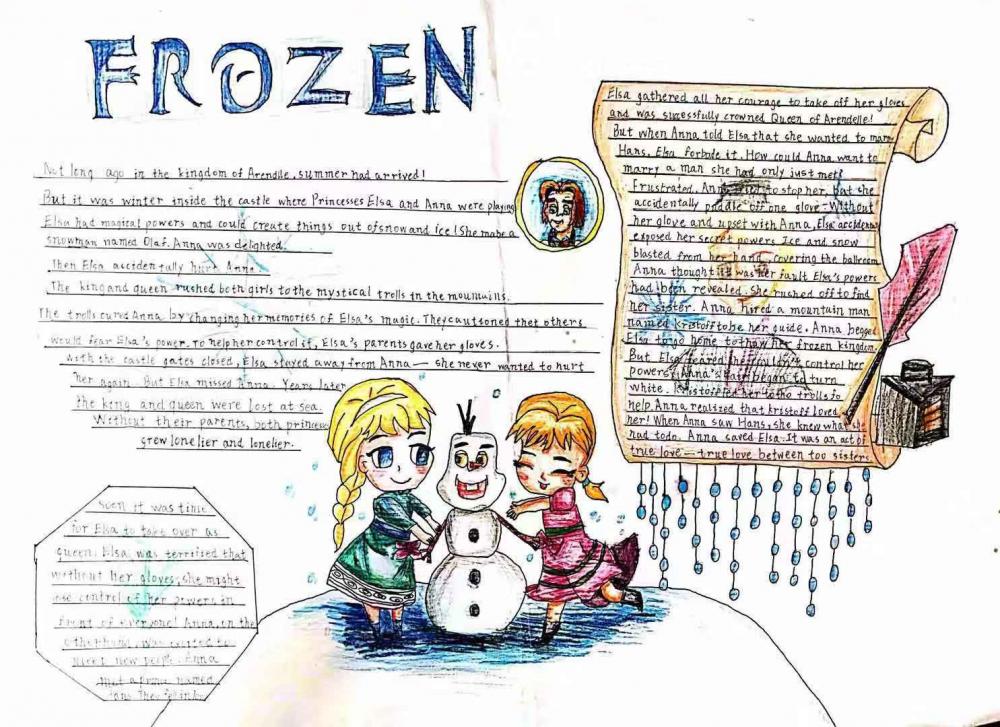 FROZEN
Not long ago in the kingdom of Arendlle, summer had arrived!
But it was winter inside the castle where Princesses Elsa and Anna were playing
Elsa had magical powers and could create things out of snow and ice! She make a
snowman named Olaf. Anna was delighted.
Then Elsa accidentally hurt Anna.
The king and queen rushed both girls to the mystical trolls in the mountains.
The trolls cured Anna by changing her memories of Elsa's magic. They cautsoned thet others
would fear Elsa's power. To help her control it, Elsa's parents gave her gloves.
With the castle gates closed, Elsa stayed away from Anna — she never wanted to hurt
her again. But Elsa missed Anna. Years later
the king and queen were lost at sea.
Without their parents, both princess
grew lonelier and lonelier.
Soon it was time
for Elsa to take over as
queen. Elsa was terrified that
without her gloves, she might
lose control of her powers in
front of everyone! Anna, on the
other hand, was excited to
meet new people. Anna
met a prince named
Hans. They fell in
Elsa gathered all her courage to take off her gloves
and was sucessfully crowned Queen of Arendelle!
But when Anna told Elsa that she wanted to marry
Hans, Elsa forbade it. How could Anna want to
marry a man she had only just met?
Frustrated, Anna tried to stop her, but she
accidentally off one glove. Without
her glove and upset with Anna, Elsa
exposed her secret powers. Ice and snow
blasted from her hand, covering the ballroom
Anna thought it was her fault Elsa's powers
had been revealed. She rushed off to find
her sister. Anna hired a mountain man
named kristoff to be her guide. Anna begged
Elsa to go home to thaw her frozen kingdom.
But Elsa feared she couldn't control her
powers. Anna's hair began to turn
white. Kristoff led her to the trolls to
help. Anna realized that kristoff loved
her! When Anna saw Hans, she knew what she
had to do. Anna saved Elsa. It was an act of
true love — true love between too sisters.